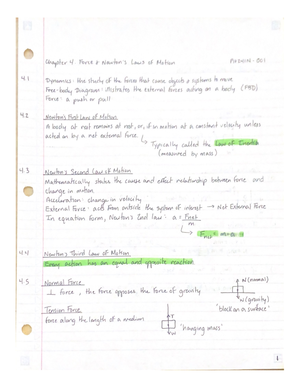 Chapter 4 Force & Newton's Laws of Motion
4.1 Dynamics: the study of the forces that cause objects & systems to move
Free-body Diagram: illustrates the external forces acting on a body (FBD)
Force: a push or pull
4.2 Newton's First Law of Motion
A body at rest remains at rest, or, if in motion at a constant velocity unless
acted on by a net external force
↳ Typically called the Law of Inertia
(measured by mass)
4.3 Newton's Second Law of Motion
Mathematically states the cause and effect relationship between force and
change in motion
Acceleration: change in velocity
External Force: acts from outside the system of interest → Net External Force
In equation form, Newton's 2nd law: a = Fnet
m
↳ Fnet = m·a
4.4 Newton's Third Law of Motion
Every action has an equal and opposite reaction
4.5 Normal Force
⊥ force, the force opposes the force of gravity
N (normal)
W (gravity)
'block on a surface'
Tension Force
force along the length of a medium
T
W
'hanging mass'
1